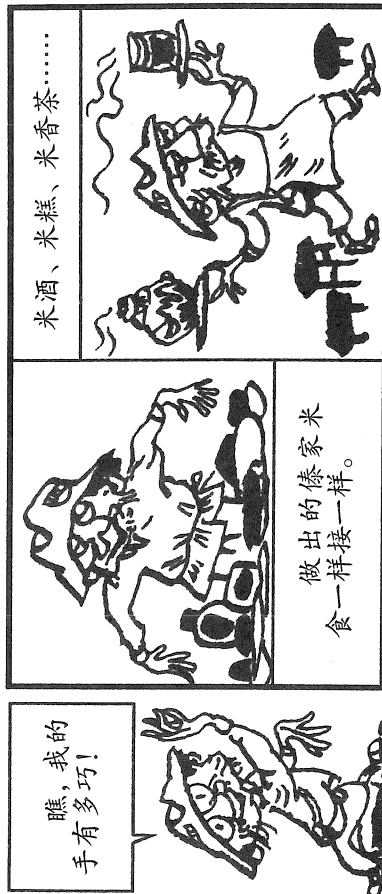 瞧，我的
手有多巧！
做出的傣家米
食一样接一样。
米酒、米糕、米香茶……